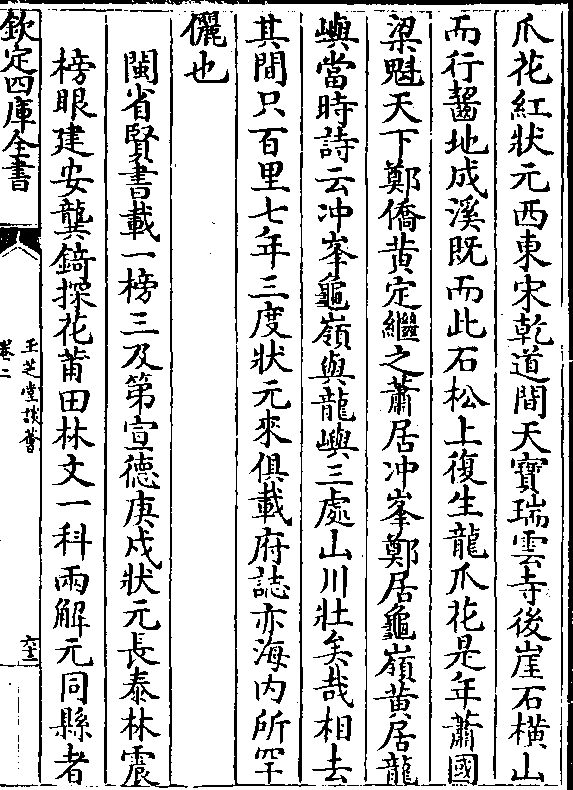 爪花紅狀元西東宋乾道間天寶瑞雲寺後崖石橫山
而行齧地成溪既而此石松上復生龍爪花是年蕭國
梁魁天下鄭僑黃定繼之蕭居冲峯鄭居龜嶺黃居龍
嶼當時詩云冲峯龜嶺與龍嶼三處山川壯矣哉相去
其間只百里七年三度狀元來俱載府誌亦海内所罕
儷也
閩省賢書載一榜三及第宣德庚戍狀元長泰林震
榜眼建安龔錡探花莆田林文一科兩解元同縣者
欽定四庫全書
玉芝堂談薈
卷二
六十二